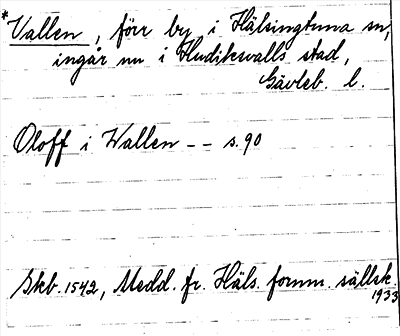 *Vallen, förr by i Hälsingtuna sn,
ingår nu i Hudiksvalls stad,
Gävleb. l.
Oloff i Wallen -- s. 90
Skb. 1542, Medd. fr. Häls. fornm. sällsk.
1933